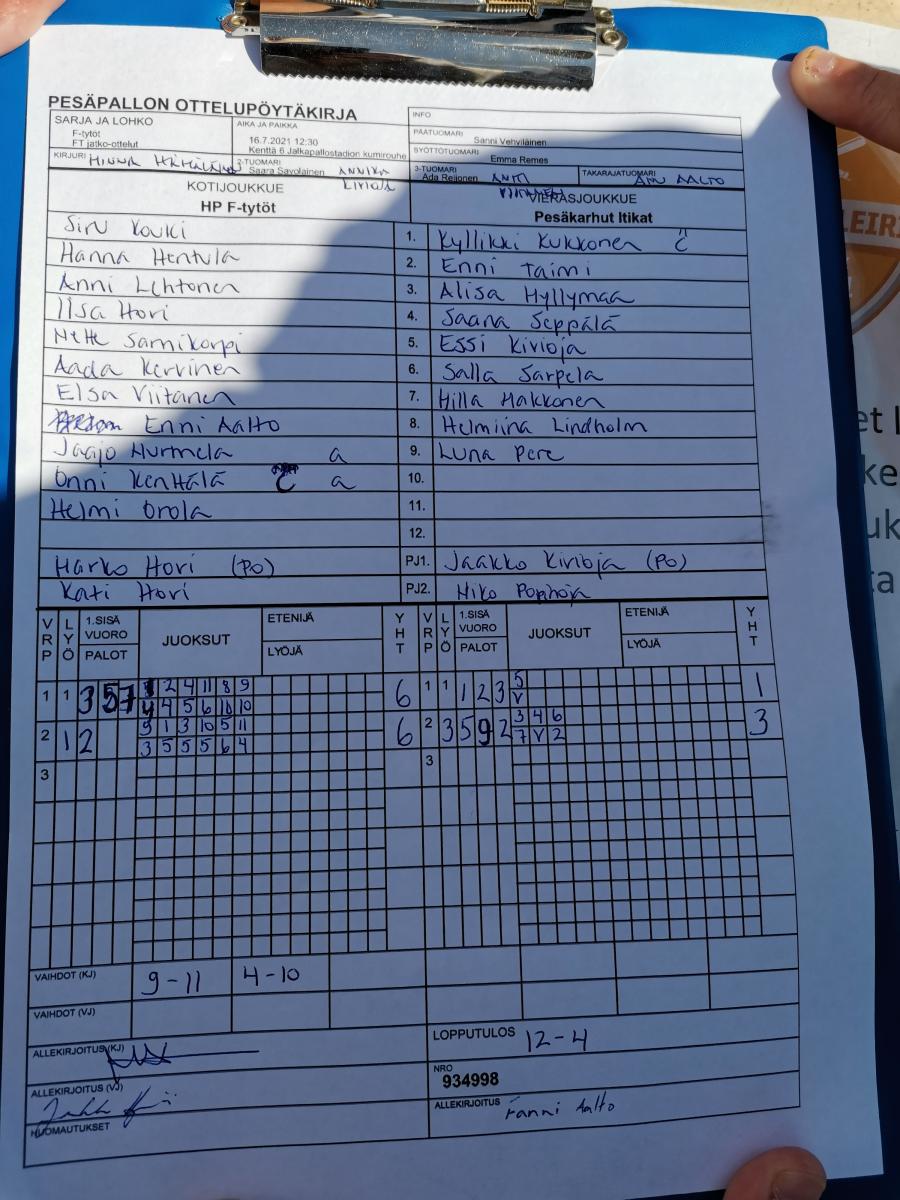 PESÄPALLON OTTELUPÖYTÄKIRJA
SARJA JA LOHKO
F-tytöt
FT jatko-ottelut
AIKA JA PAIKKA
16.7.2021 12:30
Kenttä 6 Jalkapallostadion kumirouhe
INFO
PÄÄTUOMARI
Sanni Vehviläinen
SYÖTTÖTUOMARI
Emma Remes
KIRJURI
2-TUOMARI
Saara Savolainen ANNIKA KIVIOJA
3-TUOMARI
Ada Reijonen ANTTI VIITANEN
TAKARAJATUOMARI
AALTO
KOTIJOUKKUE
HP F-tytöt
VIERASJOUKKUE
Pesäkarhut Itikat
Siru Kouki 1. Kyllikki Kukkonen č
Hanna Hentula 2. Enni Taimi
Anni Lehtonen 3. Alisa Hyllymaa
Ilsa Hovi 4. Saana Seppälä
Samikorpi 5. Essi Kivioja
Aada Kervinen 6. Salla Sarpela
Elsa Viitanen 7. Hilla Hakkonen
Enni Aalto 8. Helmiina Lindholm
Jaajo Hurmela a 9. Luna Pere
Onni Kenttälä a 10.
Helmi Orola 11.
12.
Marko Hovi (PO) PJ1. Jaakko Kivioja (PO)
Kati Hovi PJ2.
VRP LYÖ 1.SISÄ VUORO PALOT JUOKSUT ETENIJÄ LYÖJÄ YHT VRP LYÖ 1.SISÄ VUORO PALOT JUOKSUT ETENIJÄ LYÖJÄ YHT
1 1 3 5 7 2 4 11 8 9 6 1 1 1 2 3 5 1
4 4 5 6 10 10 V
2 1 2 9 1 3 10 5 11 6 2 3 5 9 2 3 4 6 3
3 5 5 5 6 4 7 V 2
3 3
VAIHDOT (KJ) 9-11 4-10
VAIHDOT (VJ)
ALLEKIRJOITUS (KJ)
LOPPUTULOS 12-4
ALLEKIRJOITUS (VJ)
NRO
934998
HUOMAUTUKSET
ALLEKIRJOITUS Fanni Aalto